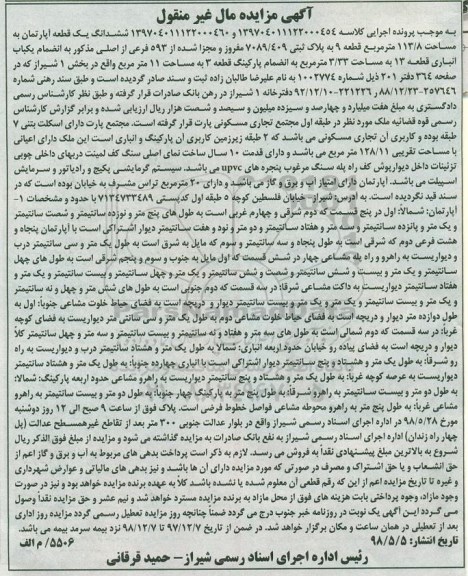 آگهی مزایده مال غیر منقول
به موجب پرونده اجرایی کلاسه ۱۳۹۷۰۴۰۱۱۱۲۲۰۰۰۴۵۴ و ۱۳۹۷۰۴۰۱۱۱۲۲۰۰۰۴۶۰ ششدانگ یک قطعه آپارتمان به
مساحت ۱۱۳/۸ مترمربع قطعه ۹ به پلاک ثبتی ۷۰۸۹/۴۰۹ مفروز و مجزا شده از ۵۹۳ فرعی از اصلی مذکور به انضمام یکباب
انباری قطعه ۱۳ به مساحت ۳/۳۳ مترمربع به انضمام پارکینگ قطعه ۳ به مساحت ۱۱ متر مربع واقع در بخش ۱ شیراز که در
صفحه ۳۶۴ دفتر ۲۰۱ ذیل شماره ۱۰۰۲۷۷۴ به نام علیرضا طالبان زاده ثبت و سند صادر گردیده است و طبق سند رهنی شماره
دفترخانه ۱ شیراز در رهن بانک صادرات قرار گرفته و طبق نظر کارشناس رسمی
دادگستری به مبلغ هفت میلیارد و چهارصد و سیزده میلیون و سیصد و شصت هزار ریال ارزیابی شده و برابر گزارش کارشناس
رسمی قوه قضائیه ملک مورد نظر در طبقه اول مجتمع تجاری مسکونی پارت قرار گرفته است. مجتمع پارت دارای اسکلت بتنی ۷
طبقه بوده و کاربری آن تجاری مسکونی می باشد که ۲ طبقه زیرزمین کاربری آن پارکینگ و انباری است این ملک دارای اعیانی
با مساحت تقریبی ۱۲۸/۱۱ متر مربع می باشد و دارای قدمت ۱۰ سال ساخت نمای اصلی سنگ کف لمینت دربهای داخلی چوبی
تزئینات داخل دیوارپوش کف راه پله سنگ مرغوب پنجره های upvc می باشد. سیستم گرمایشی پکیج و رادیاتور و سرمایش
اسپیلت می باشد. آپارتمان دارای امتیاز آب و برق و گاز می باشد و دارای ۲۰ مترمربع تراس مشرف به خیابان بوده است که در
سند قید نگردیده است. به آدرس: شیراز خیابان فلسطین کوچه ۵ طبقه اول کدپستی ۷۱۳۴۷۳۳۴۸۹ با حدود و مشخصات ۱-
آپارتمان: شمالاً: اول در پنج قسمت که دوم شرقی و چهارم غربی است به طول های پنج متر و نوزده سانتیمتر و شصت سانتیمتر
و یک متر و پانزده سانتیمتر و سه متر و هفتاد سانتیمتر و دو متر و نود و هفت سانتیمتر دیوار اشتراکی است با آپارتمان پنجاه و
هشت فرعی دوم که شرقی است به طول پنجاه و سه سانتیمتر و سوم که مایل به شرق است به طول یک متر و سی سانتیمتر درب
و دیواریست به راهرو و راه پله مشاعی چهار در شش قسمت که اول مایل به جنوب و سوم و پنجم شرقی است به طول های چهل
سانتیمتر و یک متر و بیست و شش سانتیمتر و شصت و شش سانتیمتر و یک متر و چهل سانتیمتر و بیست سانتیمتر و یک متر و
هفتاد سانتیمتر دیواریست به داکت مشاعی شرقا: در سه قسمت که دوم جنوبی است به طول های شش متر و چهل و نه سانتیمتر
و یک متر و بیست سانتیمتر و یک متر و یک متر و بیست سانتیمتر دیوار و دریچه است به فضای حیاط خلوت مشاعی جنوباً: اول به
طول دوازده متر دیوار و دریچه است به فضای حیاط خلوت مشاعی دوم به طول یک متر و سی سانتی متر دیواریست به فضای کوچه
غرباً: در سه قسمت که دوم شمالی است به طول های سه متر و هفتاد و نه سانتیمتر و بیست سانتیمتر و سه متر و چهل سانتیمتر کلاً
دیوار و دریچه است به فضای پیاده رو خیابان حدود اربعه انباری: شمالا به طول یک متر و هشتاد سانتیمتر درب و دیواریست به راه
رو شرقاً: به طول یک متر و هشتاد و پنج سانتیمتر دیوار اشتراکی است با انباری چهارده جنوباً: به طول یک متر و هشتاد سانتیمتر
دیواریست به عرصه کوچه غرباً: به طول یک متر و هشتاد و پنج سانتیمتر دیواریست به راهرو مشاعی حدود اربعه پارکینگ: شمالا:
به طول دو متر و بیست سانتیمتر به راهرو شرقاً: به طول پنج متر به پارکینگ چهار جنوباً: به طول دو متر و بیست سانتیمتر به راهرو
مشاعی غرباً: به طول پنج متر به راهرو محوطه مشاعی فواصل خطوط فرضی است. پلاک فوق از ساعت ۹ صبح الی ۱۲ روز دوشنبه
مورخ ۹۸/۵/۲۸ در اداره اجرای اسناد رسمی شیراز واقع در بلوار عدالت جنوبی ۳۰۰ متر بعد از تقاطع غیرهمسطح عدالت (پل
چهار راه زندان) اداره اجرای اسناد رسمی شیراز به نفع بانک صادرات به مزایده گذاشته می شود و مزایده از مبلغ فوق الذکر ریال
شروع به بالاترین مبلغ پیشنهادی نقداً به فروش می رسد. لازم به ذکر است پرداخت بدهی های مربوط به آب و برق و گاز اعم از
حق انشعاب و یا حق اشتراک و مصرف در صورتی که مورد مزایده دارای آن ها باشد و نیز بدهی های مالیاتی و عوارض شهرداری
و غیره تا تاریخ مزایده اعم از این که رقم قطعی آن معلوم شده یا نشده باشد کلاً به عهده برنده مزایده خواهد بود و نیز در صورت
وجود مازاد، وجوه پرداختی بابت هزینه های فوق از محل مازاد به برنده مزایده مسترد خواهد شد و نیم عشر و حق مزایده نقداً وصول
می گردد این آگهی یک نوبت در روزنامه خبر جنوب درج می گردد ضمناً چنانچه روز مزایده تعطیل رسمی گردد مزایده روز اداری
بعد از تعطیلی در همان ساعت و مکان برگزار خواهد شد. در ضمن از تاریخ ۹۷/۱۲/۷ تا ۹۸/۱۲/۷ نزد بیمه سرمد بیمه می باشد.
تاریخ انتشار: ۹۸/۵/۵
۵۵۰۶/ م الف
رئیس اداره اجرای اسناد رسمی شیراز – حمید فرقانی